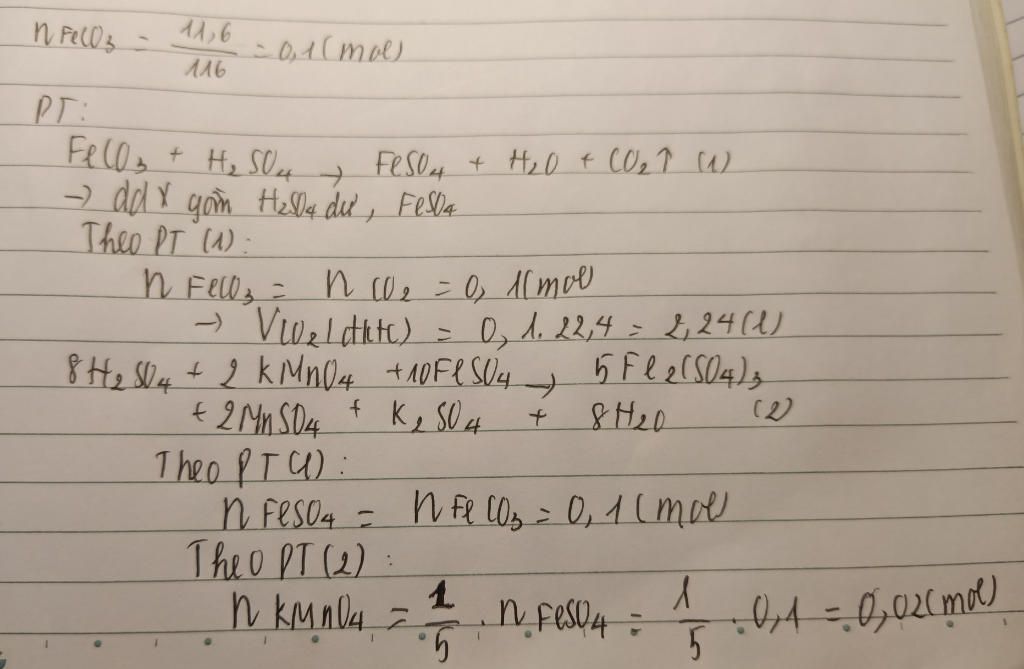 nFeCO3 = 11,6/116 = 0,1(mol)
PT:
FeCO3 + H2SO4 → FeSO4 + H2O + CO2↑ (1)
→ ddX gồm H2SO4 dư, FeSO4
Theo PT (1):
nFeCO3 = nCO2 = 0,1(mol)
→ VCO2(đktc) = 0,1.22,4 = 2,24(l)
8H2SO4 + 2KMnO4 + 10FeSO4 → 5Fe2(SO4)3
+ 2MnSO4 + K2SO4 + 8H2O (2)
Theo PT(1):
nFeSO4 = nFeCO3 = 0,1(mol)
Theo PT(2):
nKMnO4 = 1/5 . nFeSO4 = 1/5 . 0,1 = 0,02(mol)